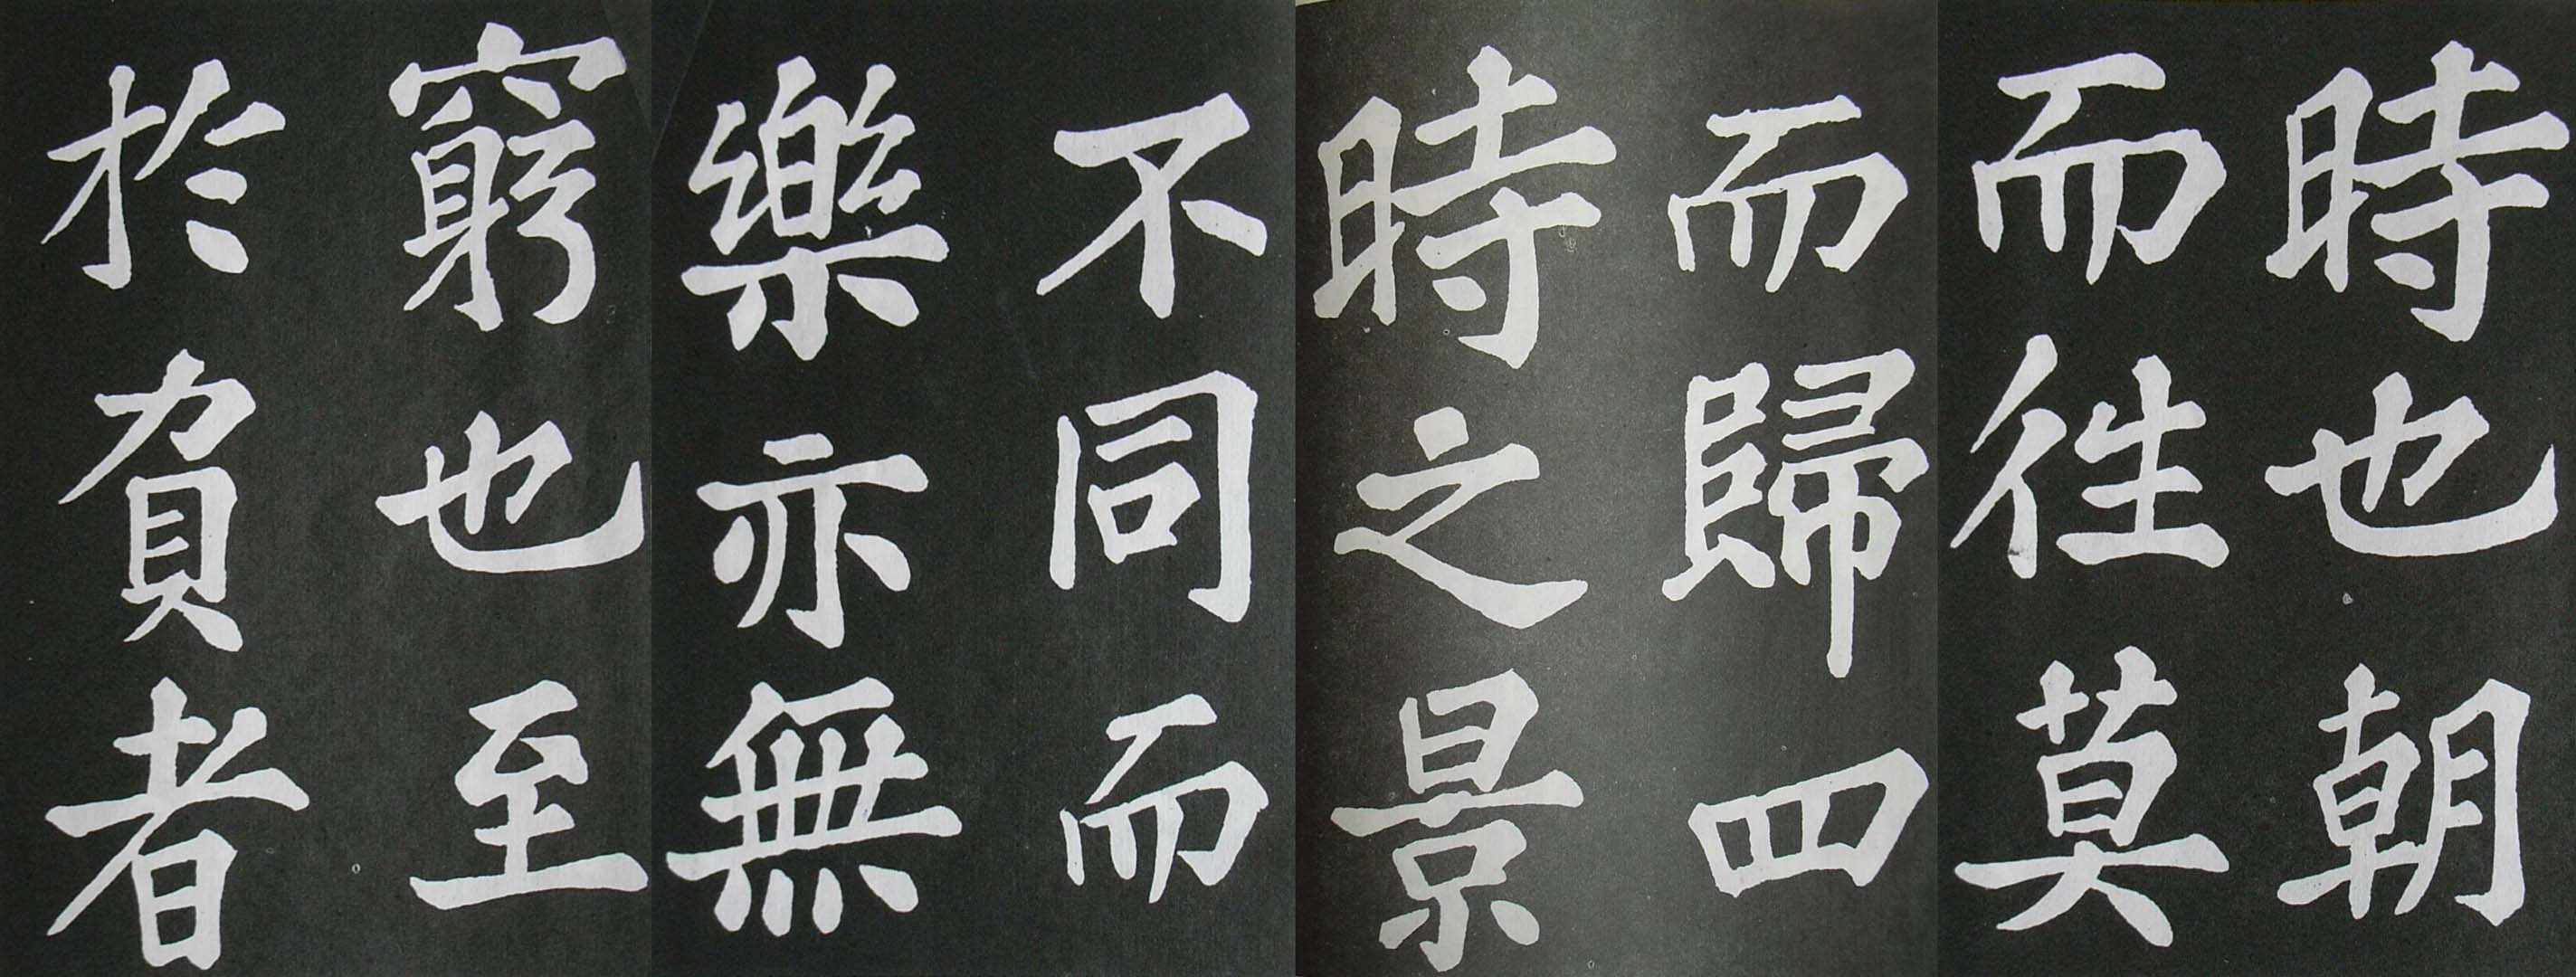 時也朝
而徃莫
而歸四
時之景
不同而
樂亦無
窮也至
於負者